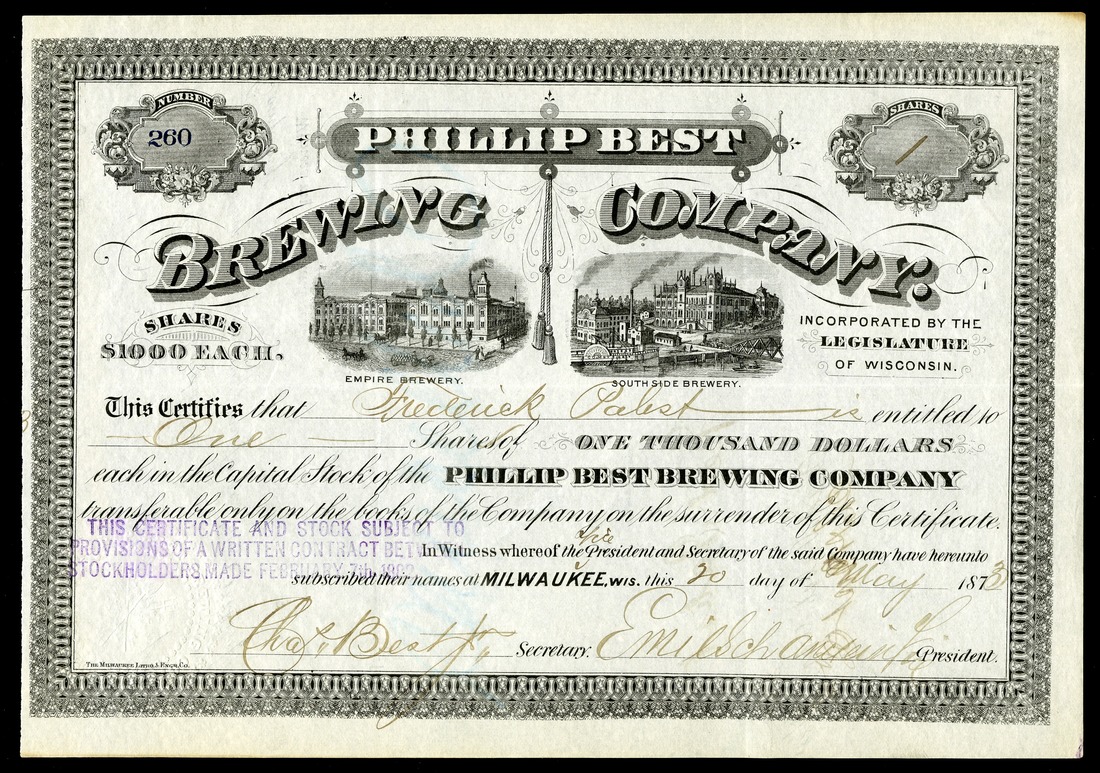 NUMBER
260
SHARES
1
PHILLIP BEST
BREWING COMPANY.
SHARES
$1000 EACH.
EMPIRE BREWERY.
SOUTH SIDE BREWERY.
INCORPORATED BY THE
LEGISLATURE
OF WISCONSIN.
This Certifies that Frederick Pabst is entitled to
One Shares of ONE THOUSAND DOLLARS
each in the Capital Stock of the PHILLIP BEST BREWING COMPANY
transferable only on the books of the Company on the surrender of this Certificate.
THIS CERTIFICATE AND STOCK SUBJECT TO
PROVISIONS OF A WRITTEN CONTRACT BETW
STOCKHOLDERS MADE FEBRUARY 7th
In Witness whereof the Vice President and Secretary of the said Company have hereunto
subscribed their names at MILWAUKEE, WIS. this 20 day of May 1873
Chas. Best Jr, Secretary. Emil Schandein President.
THE MILWAUKEE LITHO. & ENGR. CO.